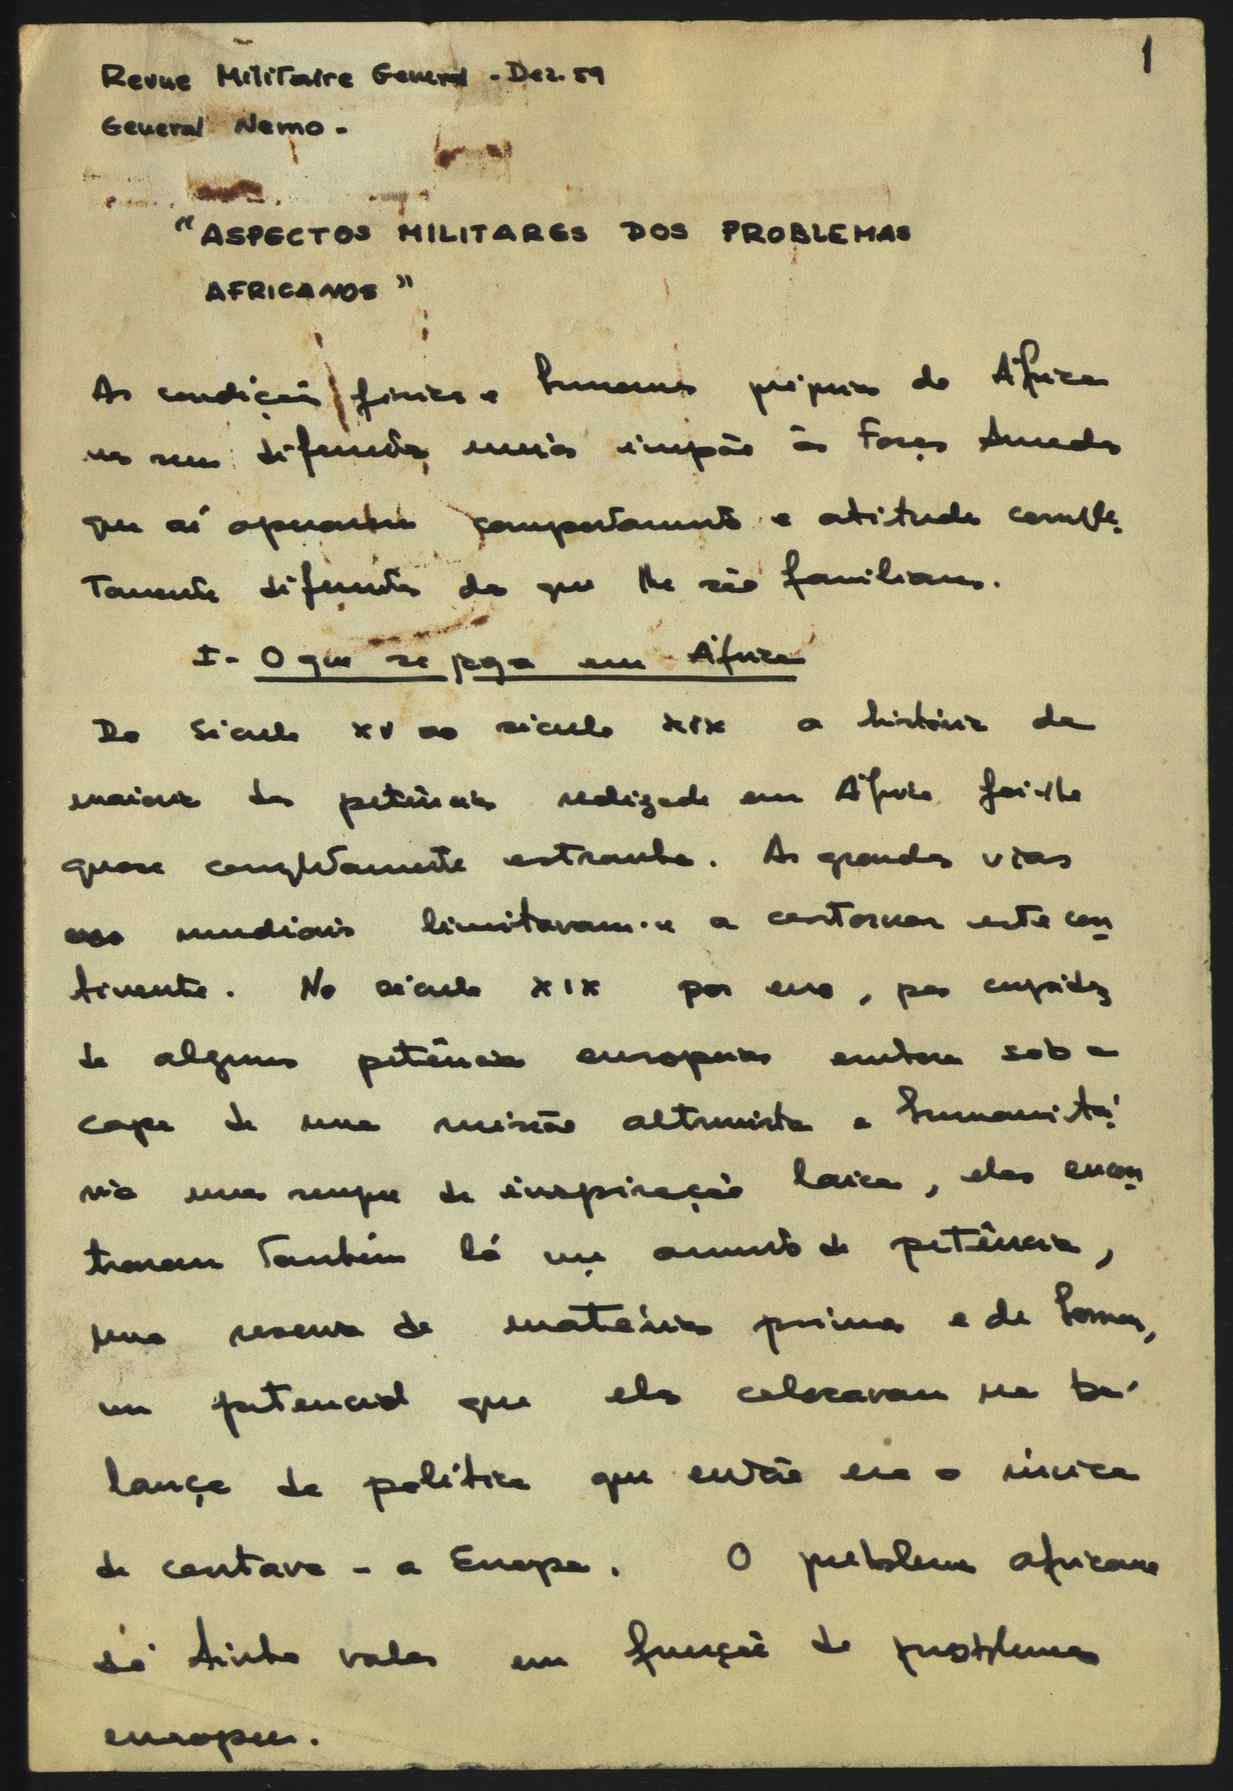 1
Revue Militaire General - Dez. 59
General Nemo -
"ASPECTOS MILITARES DOS PROBLEMAS
AFRICANOS"
As condições físicas e humanas próprias da África
nos seus diferentes meios impõe às Forças Armadas
que aí operarem comportamento e atitude comple
tamente diferentes das que lhe são familiares.
I - O que se joga em África
Do Século XV ao século XIX a história da
maioria das potências realizada em África foi-lhe
quase completamente estranha. As grandes vias
mundiais limitavam-se a contornar este con
tinente. No século XIX por , por cupidez
de algumas potências europeias embora sob a
capa de uma missão altruista e humanitá
ria mas sempre de inspiração laica, elas encon
traram também lá um aumento de potência,
uma reserva de matérias primas e de homens,
um potencial que elas colocavam na ba-
lança da política que então era a única
que contava - a Europa. O problema africano
só tinha valor em função de problemas
europeus.